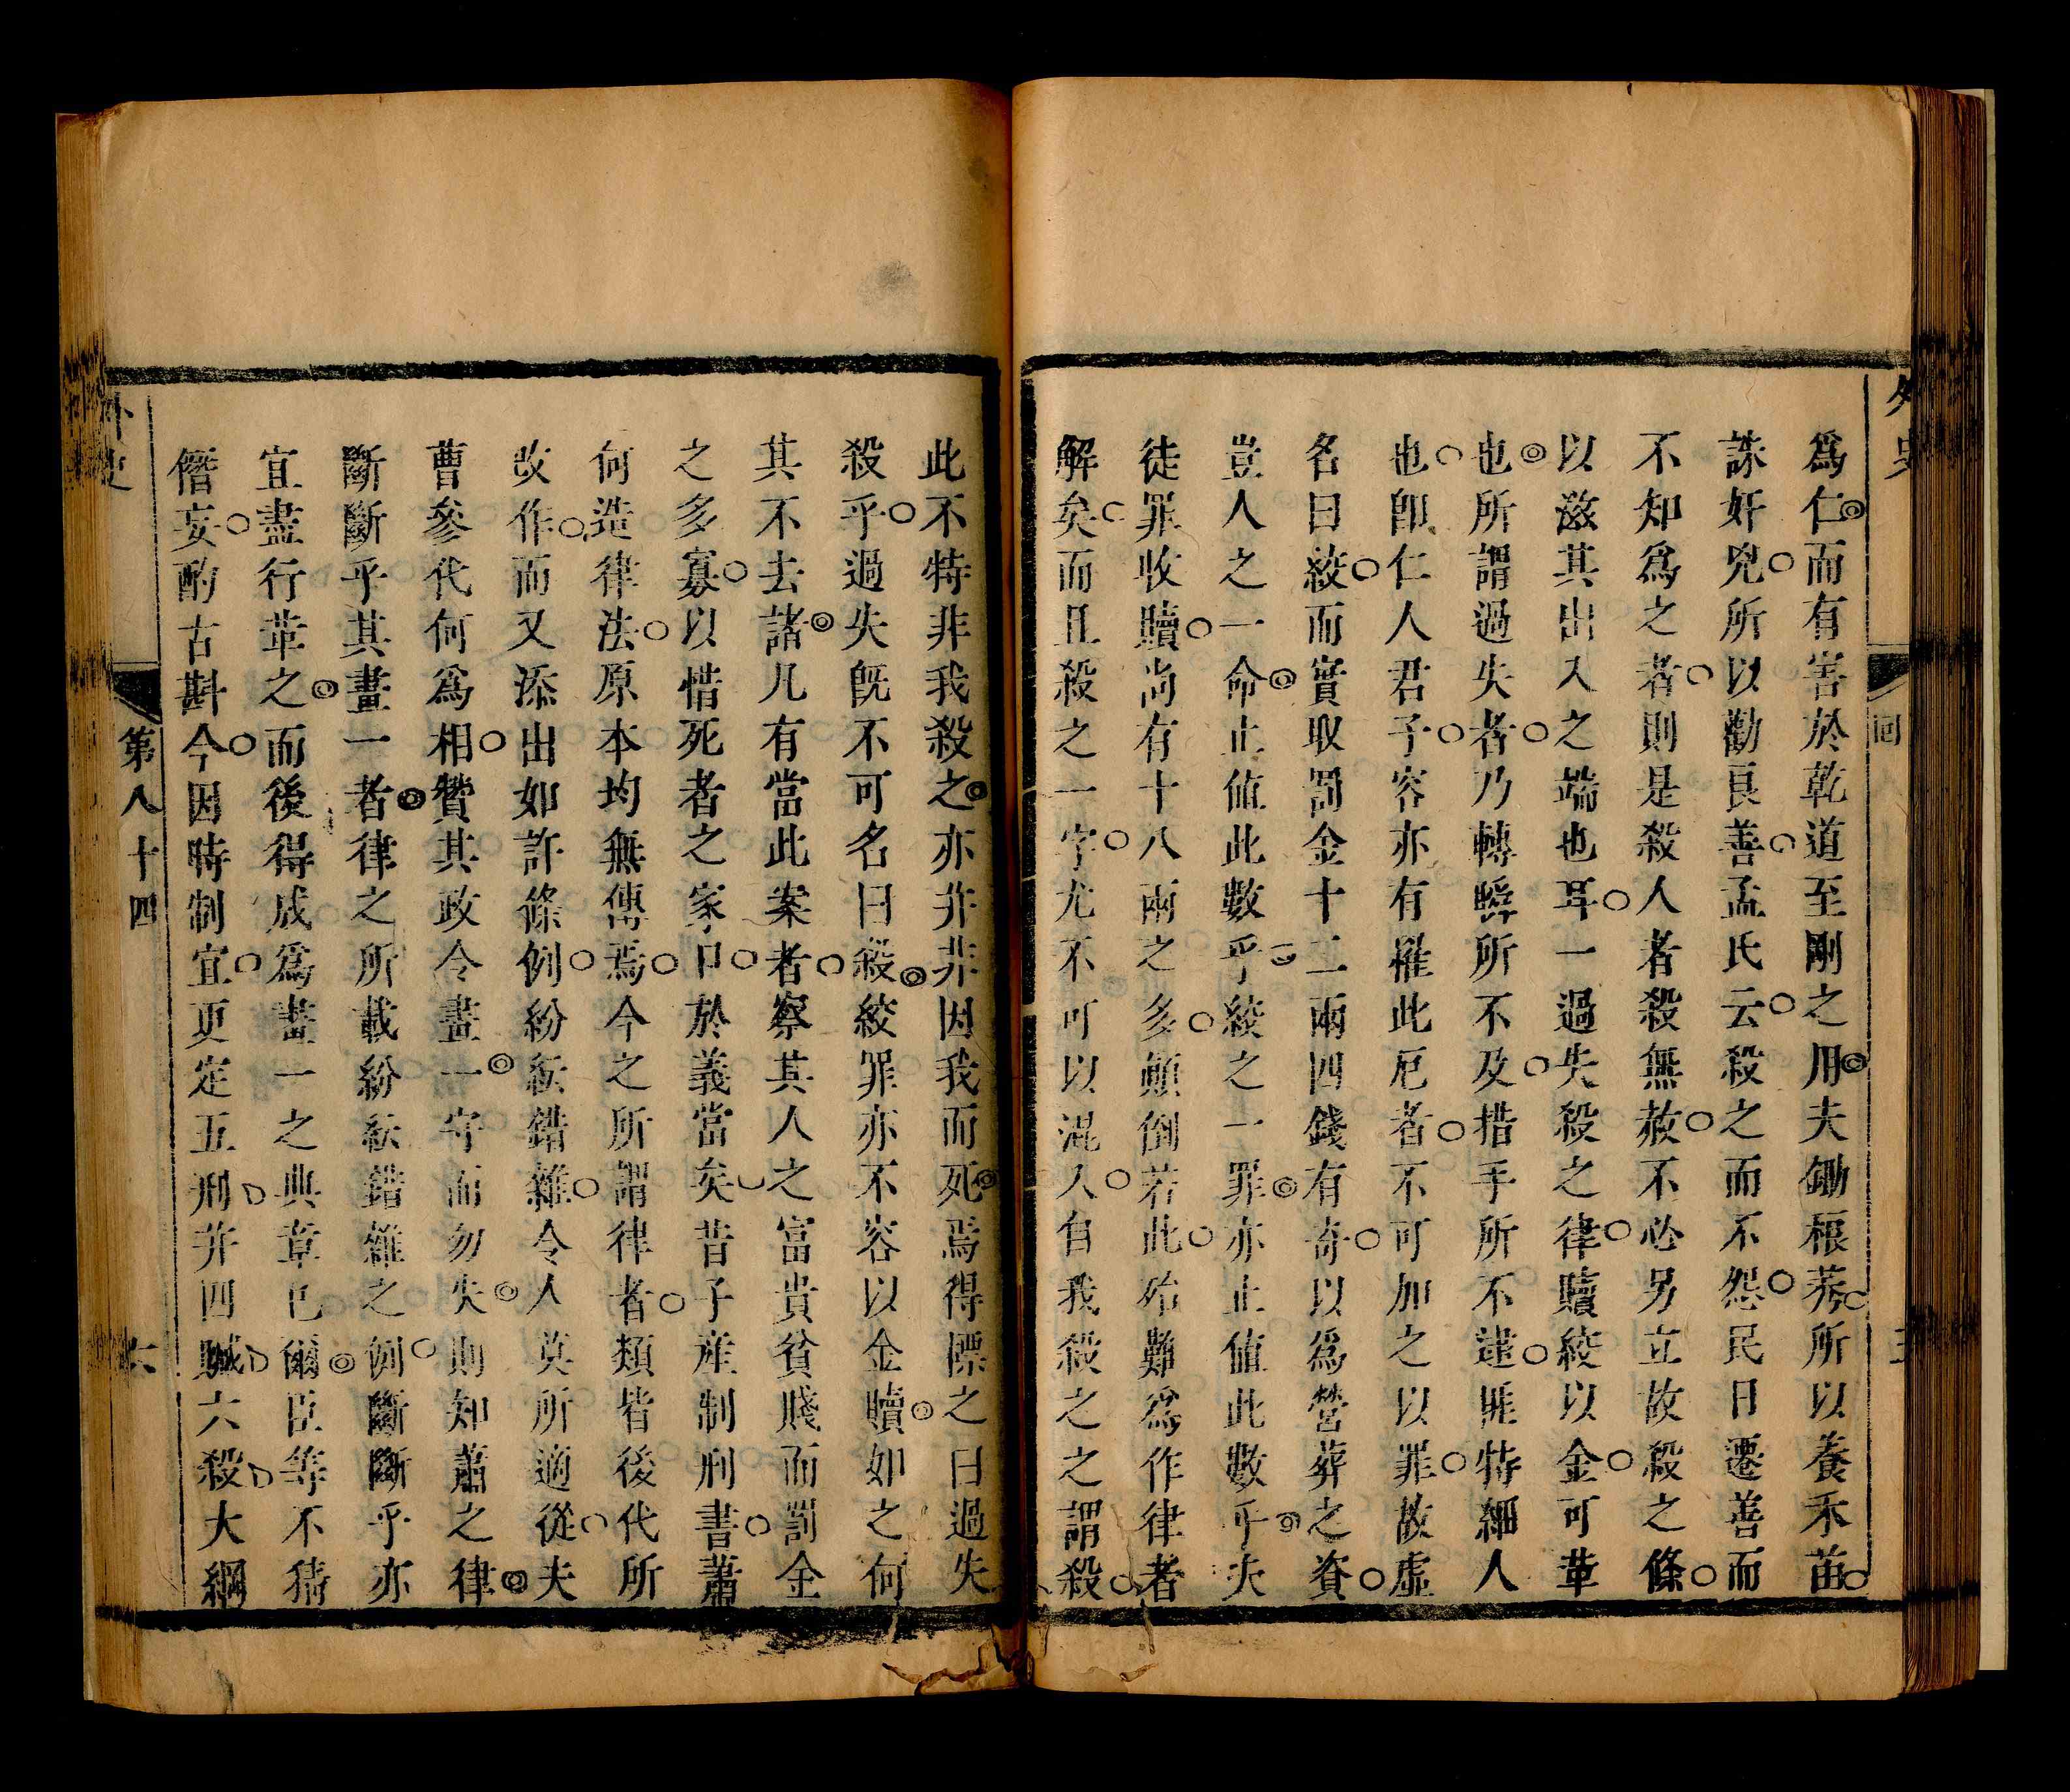 外史
回
五
為仁而有害於乾道至剛之用夫鋤根莠所以養禾苗
誅奸兇所以勸良善孟氏云殺之而不怨民日遷善而
不知為之者則是殺人者殺無赦不必另立故殺之條
以滋其出入之端也耳一過失殺之律贖絞以金可革
也所謂過失者乃轉瞬所不及措手所不逮匪特細人
也卽仁人君子容亦有罹此厄者不可加之以罪故虛
名曰絞而實取罰金十二兩四錢有奇以為營葬之資
豈人之一命止值此數乎絞之一罪亦止值此數乎夫
徒罪收贖尚有十八兩之多顛倒若此殆難為作律者
解矣而且殺之一字尤不可以混人自我殺之之謂殺
此不特非我殺之亦并非因我而死焉得僳之曰過失
殺乎過失旣不可名曰殺絞罪亦不容以金贖如之何
其不去諸凡有當此案者察其人之富貴貧賤而罰金
之多寡以惜死者之家口於義當矣昔子產制刑書蕭
何造律法原本均無傳焉今之所謂律者類皆後代所
改作而又添出如許條例紛紜錯雜令人莫所適從夫
曹參代何為相贊其政令畫一守而勿失則知蕭之律
斷斷乎其畫一者律之所載紛紜錯雜之例斷斷乎亦
宜盡行革之而後得成為畫一之典章也爾臣等不猜
僭妄酌古斟今因時制宜更定五刑并四贓六殺大綱
外史
第八十四
六